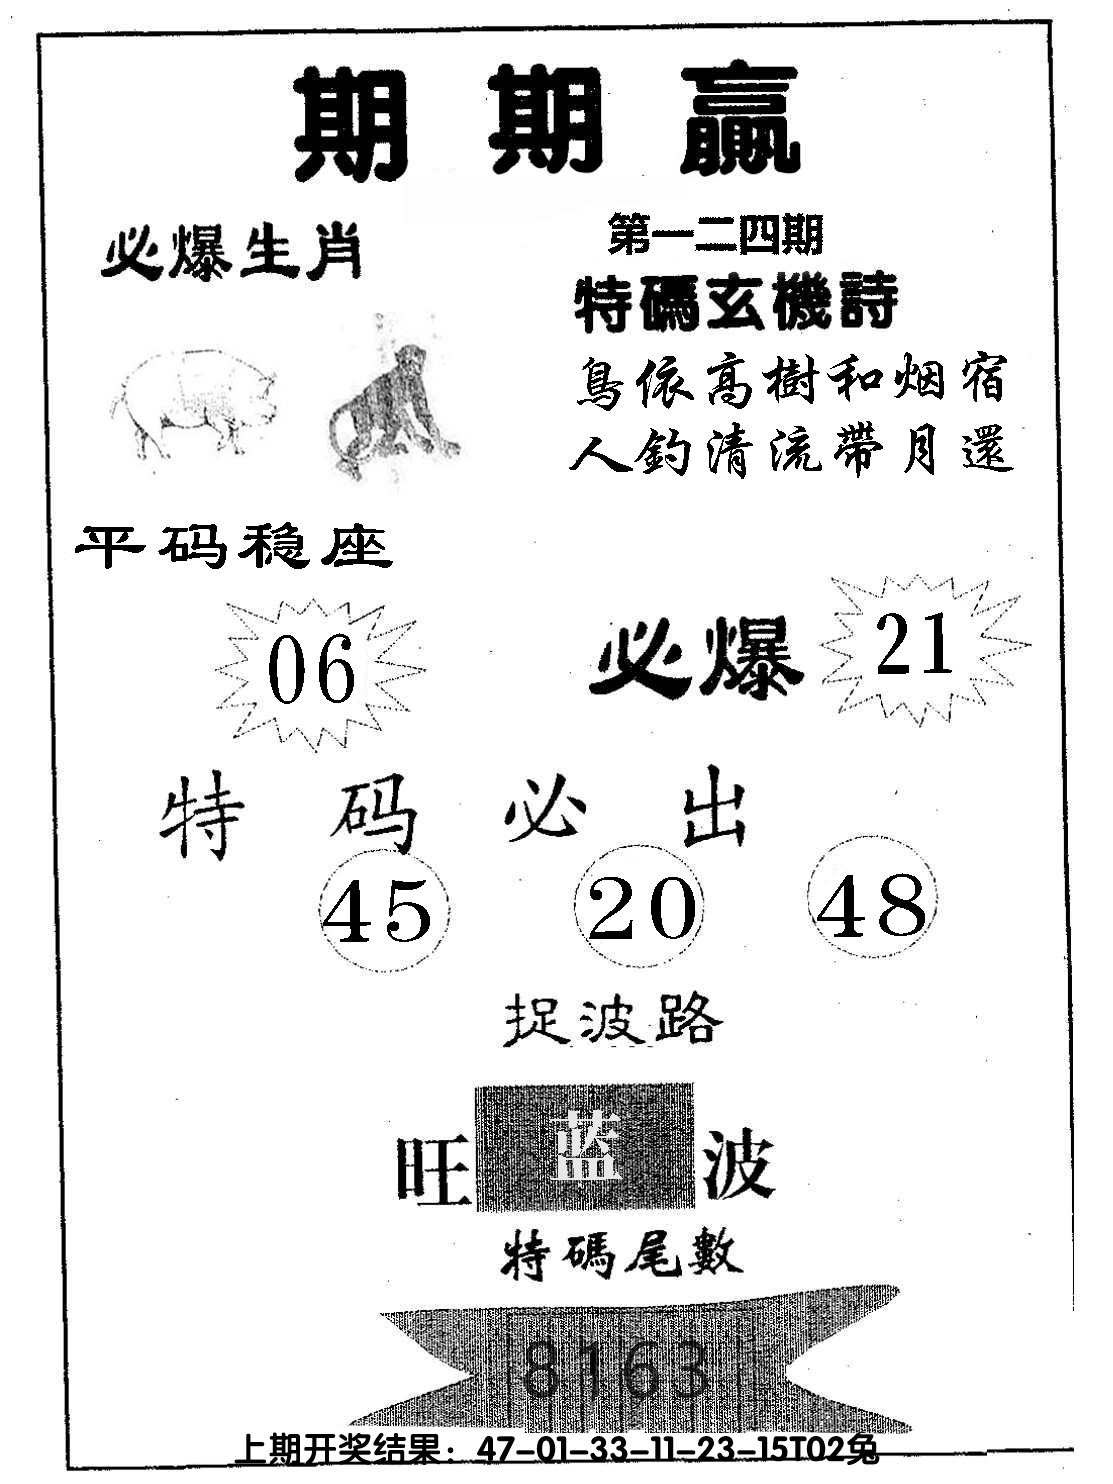 期期贏
必爆生肖
第一二四期
特碼玄機詩
鳥依高樹和烟宿
人釣清流帶月還
平码稳座
06
必爆 21
特码必出
45 20 48
捉波路
旺 蓝 波
特碼尾數
8163
上期开奖结果：47-01-33-11-23-15T02兔